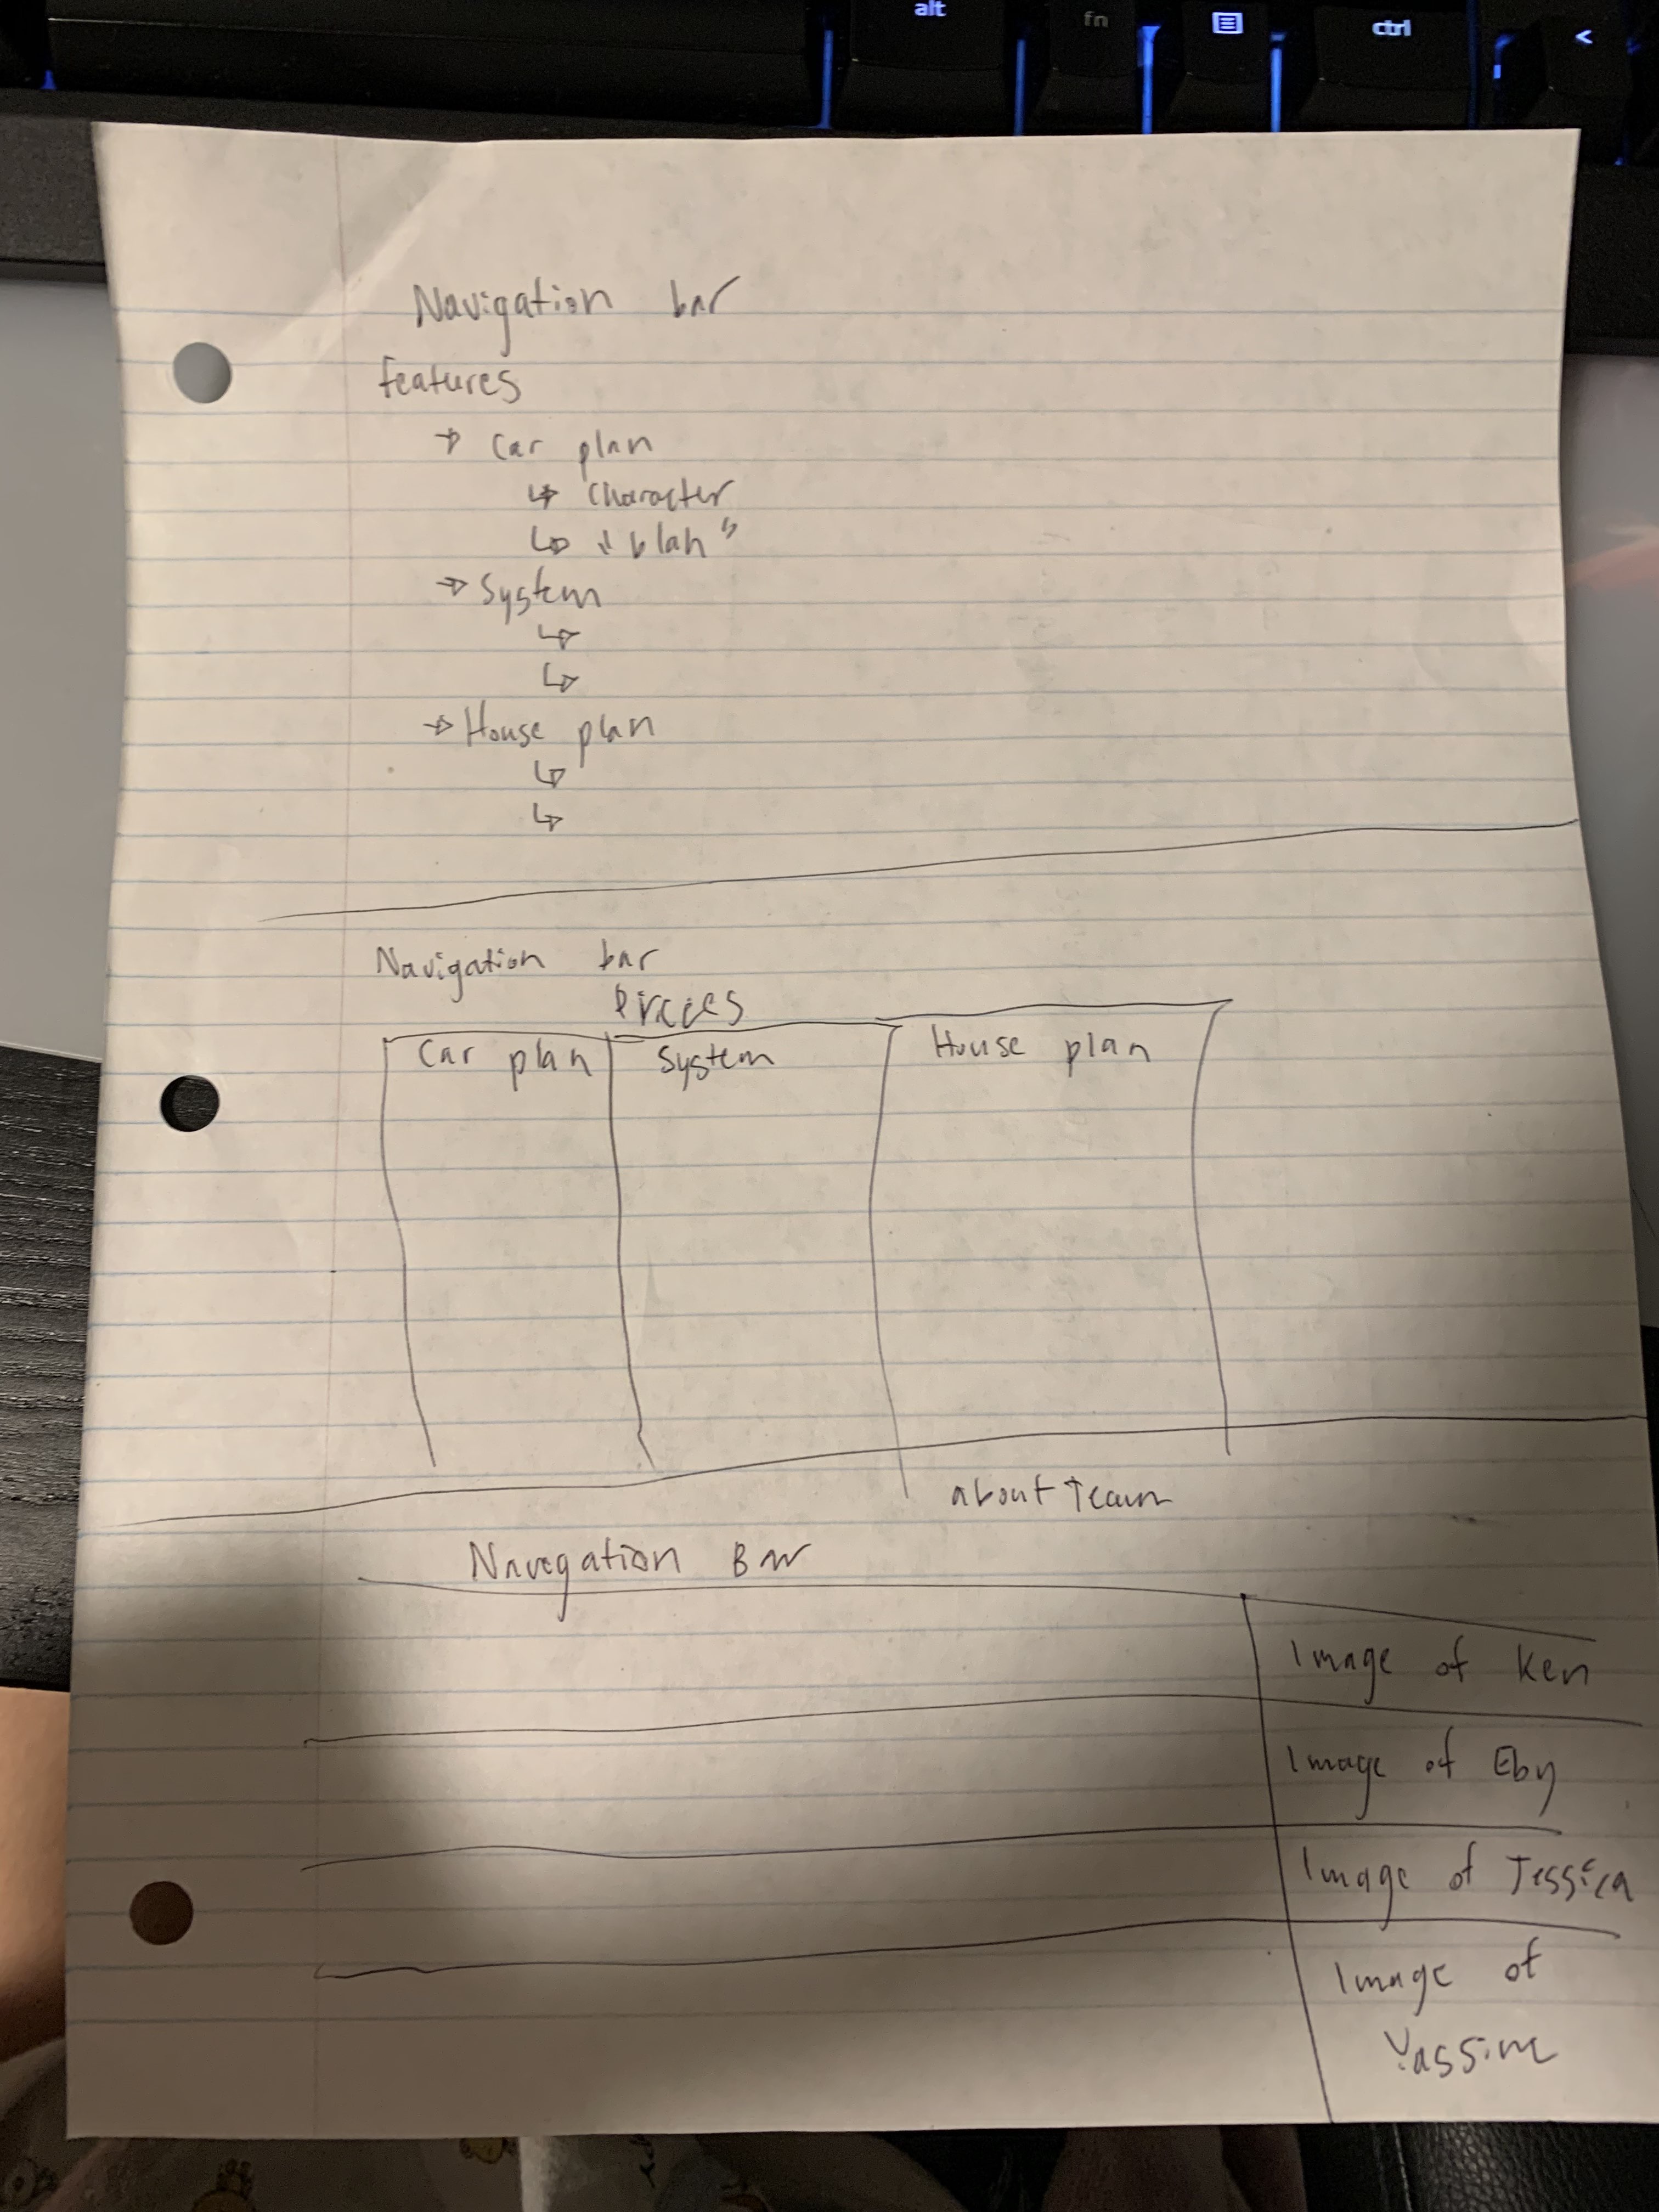 alt fn ctrl <
Navigation bar
features
→ Car plan
↳ Character
↳ "blah"
→ System
↳
↳
→ House plan
↳
↳
Navigation bar
Prices
Car plan System House plan
about Team
Navegation Bar
Image of Ken
Image of Eby
Image of Jessica
Image of
Yassine